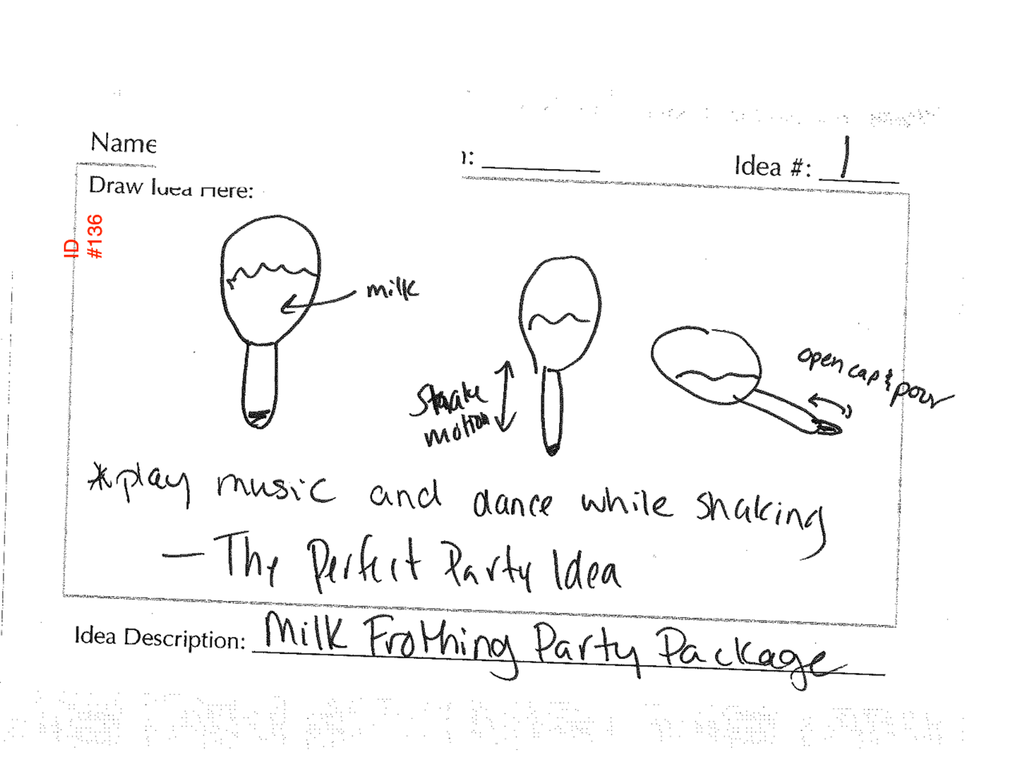 Name
: ______ Idea #: 1
Draw Idea Here:
ID
#136
milk
Shake
motion
open cap & pour
*play music and dance while shaking
— The Perfect Party Idea
Idea Description: Milk Frothing Party Package